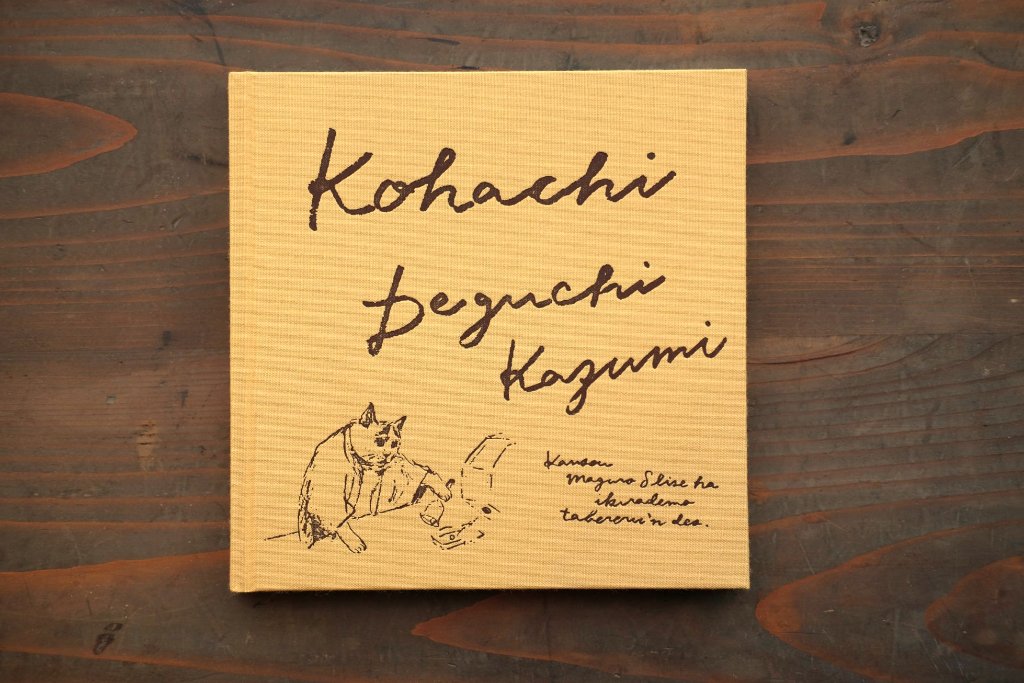 Kohachi
Deguchi
Kazumi
Kansou
maguro Slise ha
ikurademo
taberareru'n des.